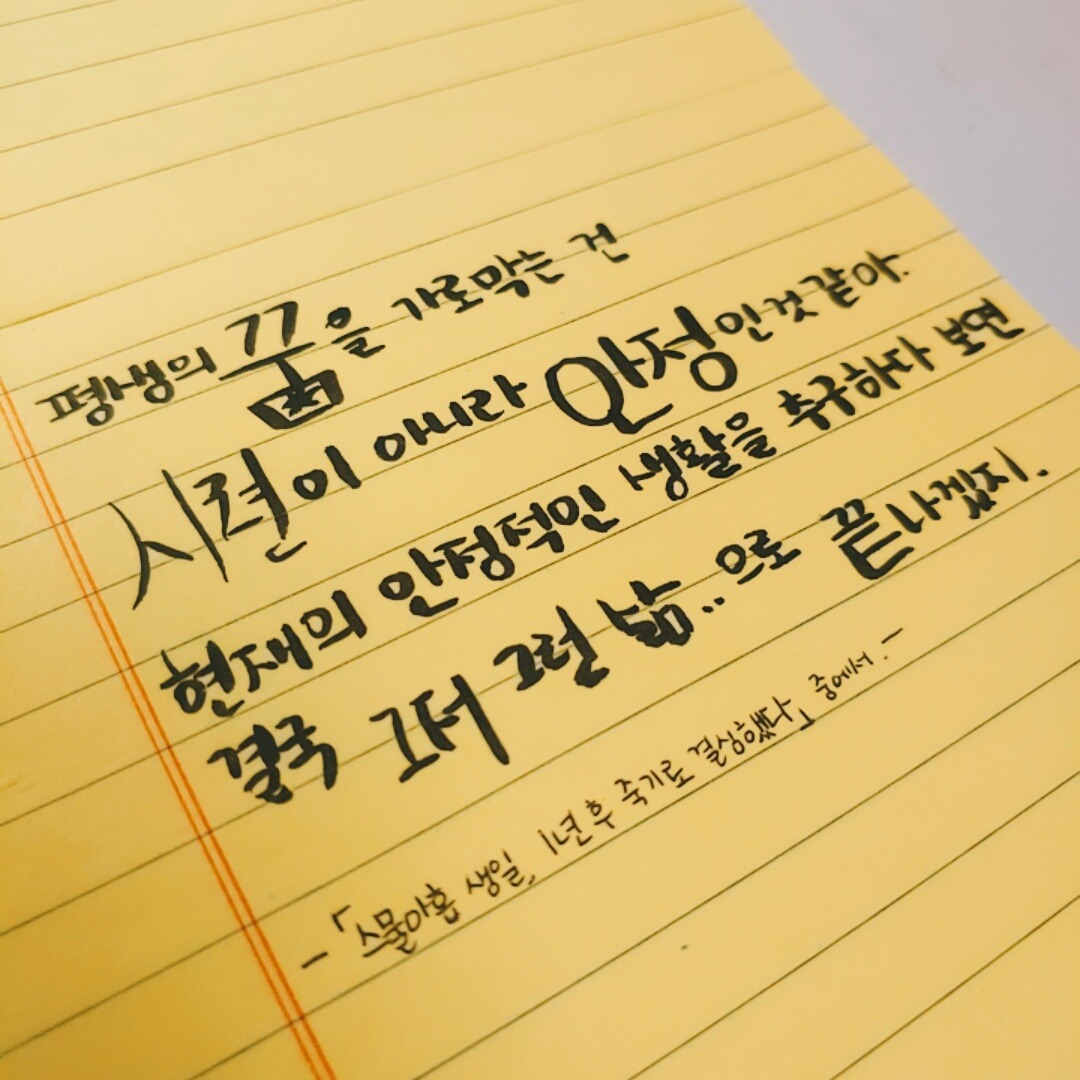 평생의 꿈을 가로막는 건
시련이 아니라 안정인것 같아.
현재의 안정적인 생활을 추구하다 보면
결국 그저 그런 삶..으로 끝나겠지.
-「스물아홉 생일, 1년후 죽기로 결심했다」 중에서.-